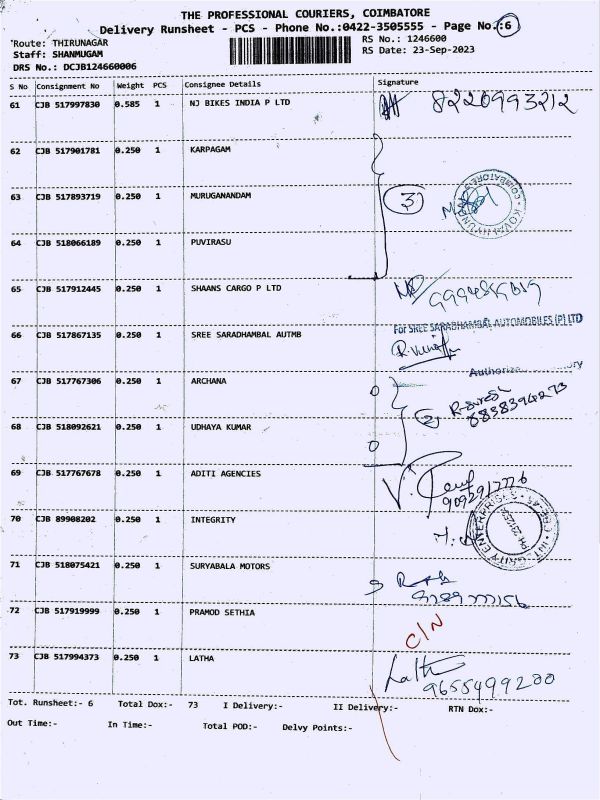 THE PROFESSIONAL COURIERS, COIMBATORE
Delivery Runsheet - PCS - Phone No.:0422-3505555 - Page No.:6
Route: THIRUNAGAR RS No.: 1246600
Staff: SHANMUGAM RS Date: 23-Sep-2023
DRS No.: DCJB124660006
S No Consignment No Weight PCS Consignee Details Signature
61 CJB 517997830 0.585 1 NJ BIKES INDIA P LTD 8220993212
62 CJB 517901781 0.250 1 KARPAGAM
63 CJB 517893719 0.250 1 MURUGANANDAM 3
64 CJB 518066189 0.250 1 PUVIRASU
65 CJB 517912445 0.250 1 SHAANS CARGO P LTD
For SREE SARADHAMBAL AUTOMOBILES (P) LTD
66 CJB 517867135 0.250 1 SREE SARADHAMBAL AUTMB
67 CJB 517767306 0.250 1 ARCHANA
R. Suresh
2 8838394273
68 CJB 518092621 0.250 1 UDHAYA KUMAR
69 CJB 517767678 0.250 1 ADITI AGENCIES
9092917776
70 CJB 89908202 0.250 1 INTEGRITY
71 CJB 518075421 0.250 1 SURYABALA MOTORS
72 CJB 517919999 0.250 1 PRAMOD SETHIA C/N
73 CJB 517994373 0.250 1 LATHA Latha
9655499200
Tot. Runsheet:- 6 Total Dox:- 73 I Delivery:- II Delivery:- RTN Dox:-
Out Time:- In Time:- Total POD:- Delvy Points:-